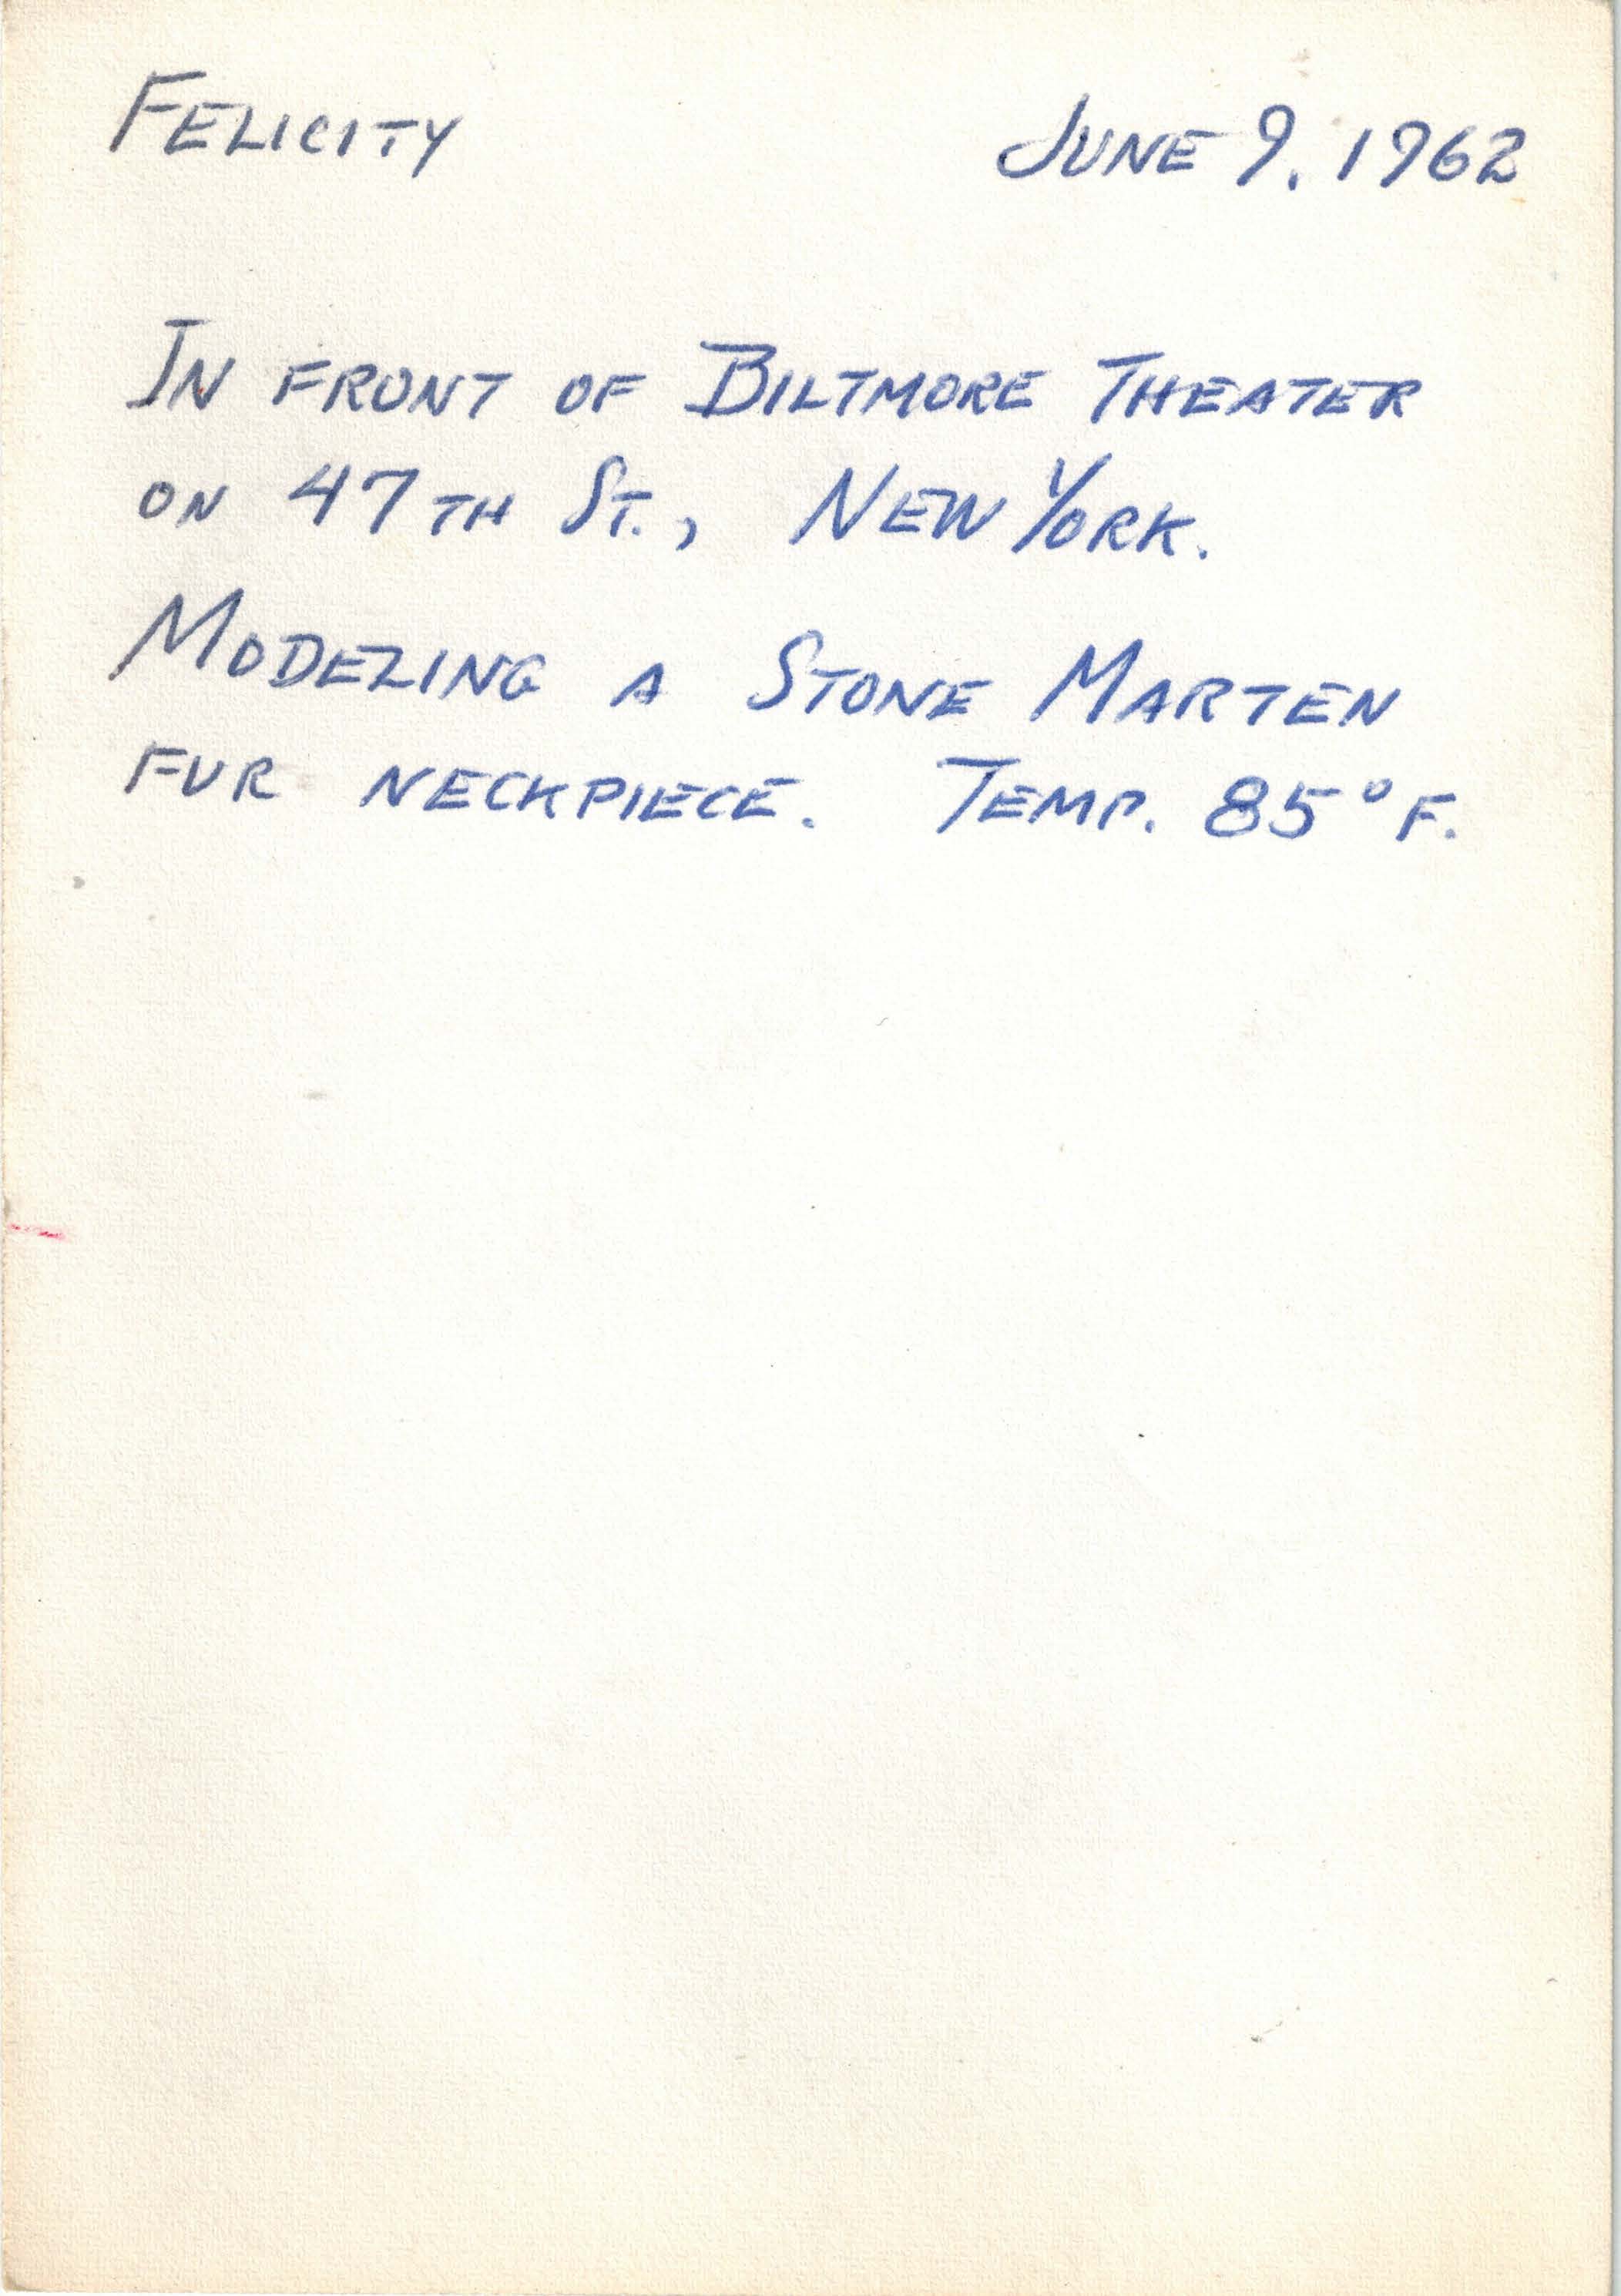 FELICITY JUNE 9, 1962
IN FRONT OF BILTMORE THEATER
ON 47TH ST., NEW YORK.
MODELING A STONE MARTEN
FUR NECKPIECE. TEMP. 85°F.